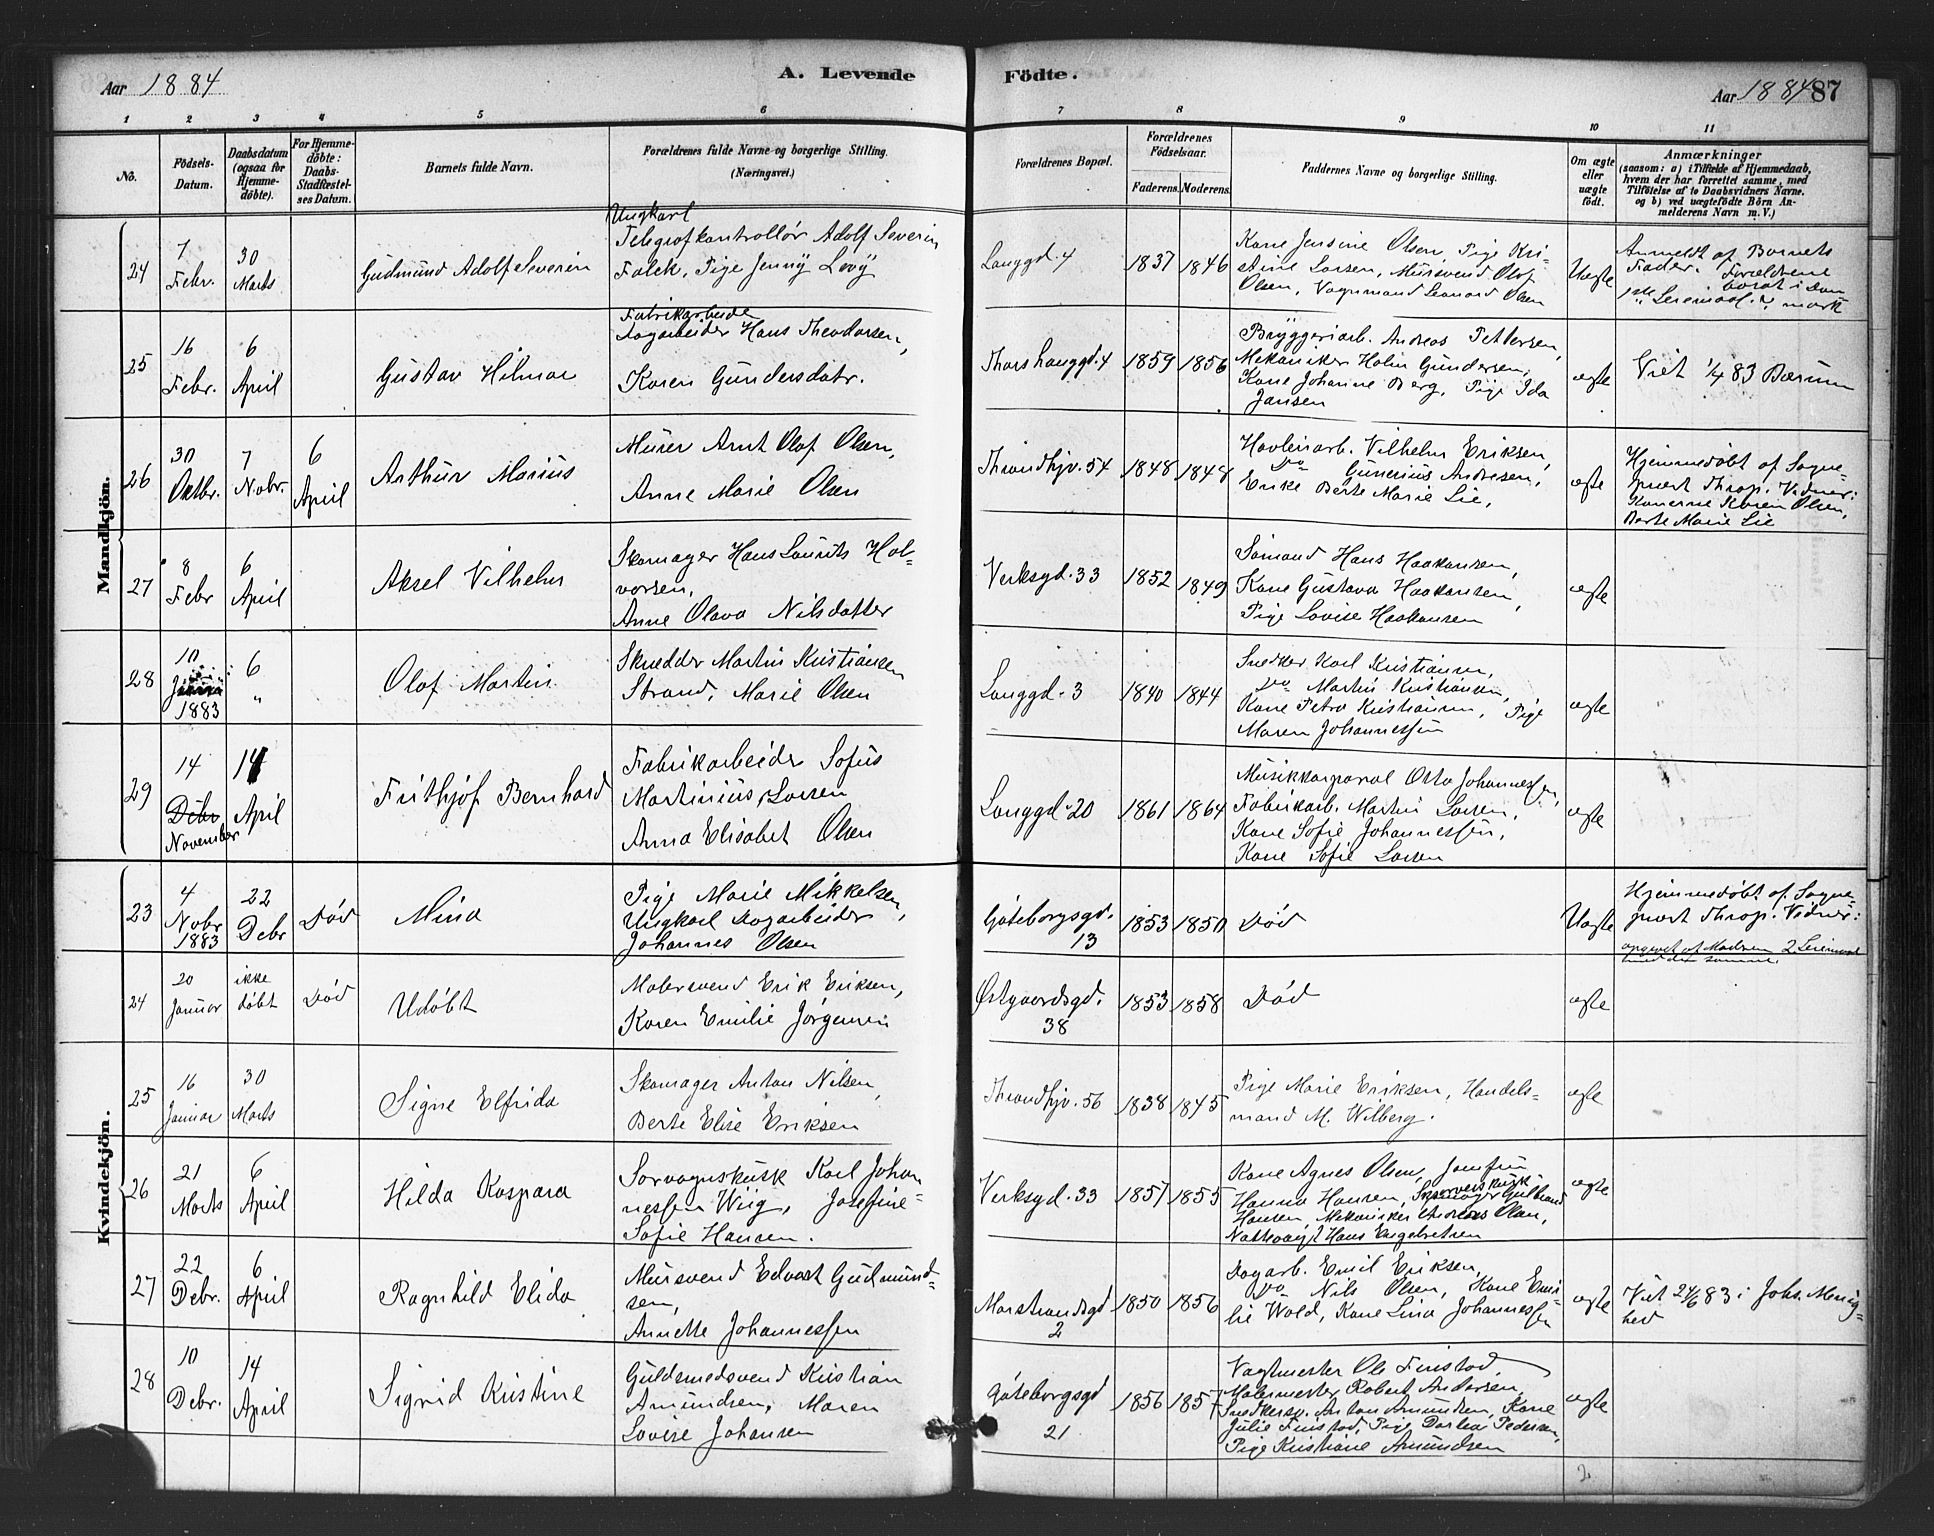 Aar 1884
A. Levende
Födte.
Aar 1884 87
1 2 3 4 5 6 7 8 9 10 11
No.
Födsels-
Datum.
Daabsdatum
(ogsaa for
Hjemme-
döbte).
For Hjemme-
döbte:
Daabs-
Stadfæstel-
ses Datum.
Barnets fulde Navn.
Forældrenes fulde Navne og borgerlige Stilling.
(Næringsvei.)
Forældrenes Bopæl.
Forældrenes
Födselsaar.
Faderens. Moderens.
Faddernes Navne og borgerlige Stilling.
Om ægte
eller
uægte
födt.
Anmærkninger
(saasom: a) i Tilfælde af Hjemmedaab,
hvem der har forrettet samme, med
Tilföielse af to Daabsvidners Navne.
og b) ved uægtefödte Börn An-
melderens Navn m. V.)
Mandkjön.
24
7
Febr.
30
Marts
Gudmund Adolf Severin
Ungkarl
Telegrafkontrollør Adolf Severin
Falck, Pige Jenny Levy
Langgd. 4
1837
1846
Kone Jensine Olsen, Pige Kri-
stine Larsen, Mursvend Olaf
Olsen, Vognmand Leonard Olsen
Uægte
Anmeldt af Barnets
Fader. Forældrene
borat i Dan
1ste Leiermaal. mark
25
16
Febr.
6
April
Gustav Hilmar
Fabrikarbeide
Dagarbeider Hans Theodorsen,
Karen Gundersdatr.
Thorshauggd. 4
1859
1856
Bryggeriarb. Andreas Pettersen,
Mekaniker Holm Gundersen,
Kone Johanne Berg, Pige Ida
Jansen
ægte
Viet 1/4 83 Bærum
26
30
Oktbr.
7
Nobr.
6
April
Arthur Marius
Murer Arnt Olaf Olsen,
Anne Marie Olsen
Throndhjv. 54
1848
1848
Høvleriarb. Vilhelm Eriksen,
Do Gunerius Andresen,
Enke Berte Marie Lie,
ægte
Hjemmedøbt af Sogne-
præst Throp. Vidner:
Konerne Karen Olsen,
Berte Marie Lie
27
8
Febr
6
April
Aksel Vilhelm
Skomager Hans Laurits Hal-
vorsen,
Anne Olava Nilsdatter
Verksgd. 33
1852
1849
Sømand Hans Haakonsen,
Kone Gustava Haakonsen,
Pige Lovise Haakonsen
ægte
28
10
1883
6
"
Olaf Martin
Skrædder Martin Kristiansen
Strand, Marie Olsen
Langgd. 3
1840
1844
Snedker Karl Kristiansen,
Do Martin Kristiansen,
Kone Petra Kristiansen, Pige
Maren Johannessen
ægte
29
14
Debr
November
14
April
Frithjof Bernhard
Fabrikarbeider Sofus
Martinius Larsen
Anna Elisabet Olsen
Langgd. 20
1861
1864
Musikkorporal Otto Johannessen,
Fabrikarb. Martin Larsen,
Kone Sofie Johannessen,
Kone Sofie Larsen
ægte
Kvindekjön.
23
4
Nobr
1883
22
Debr
Død
Mina
Pige Marie Mikkelsen,
Ungkarl Dagarbeider
Johannes Olsen
Göteborgsgd.
13
1853
1850
Død
Uægte
Hjemmedøbt af Sogne-
præst Throp. Vidner:
opgivet af Moderen 2 Leiermaal
med den samme.
24
20
Januar
ikke
døbt
Død
Udøbt
Malersvend Erik Eriksen,
Karen Emilie Jørgensen
Østgaardsgd.
38
1853
1858
Død
ægte
25
16
Januar
30
Marts
Signe Elfrida
Skomager Anton Nilsen,
Berte Elise Eriksen
Throndhjv. 56
1838
1845
Pige Marie Eriksen, Handels-
mand M. Wilberg.
ægte
26
21
Marts
6
April
Hilda Kaspara
Sporvognskusk Karl Johan
nessen Wiig, Josefine
Sofie Hansen.
Verksgd. 33
1857
1855
Kone Agnes Olsen, Jomfru
Hanna Hansen, Gulbrand
Hansen, Mekaniker Andreas Olsen,
Nattevagt Hans Engebretsen
ægte
27
22
Debr.
6
April
Ragnhild Elida
Mursvend Edvart Gudmund-
sen,
Annette Johannessen
Marstrandsgd
2
1850
1856
Dagarb. Emil Eriksen,
Do Nils Olsen, Kone Emi-
lie Wold, Kone Lina Johannessen
ægte
Viet 24/6 83 i Johs. Menig-
hed
28
10
Debr.
14
April
Sigrid Kristine
Guldsmedsvend Kristian
Amundsen, Maren
Lovise Johansen
Göteborgsgd
21
1856
1857
Vagtmester Ole Finstad
Malermester Robert Andersen,
Snedkersv. Anton Amundsen, Kone
Julie Finstad, Pige Dorthea Pedersen,
Pige Kristiane Amundsen
ægte
2